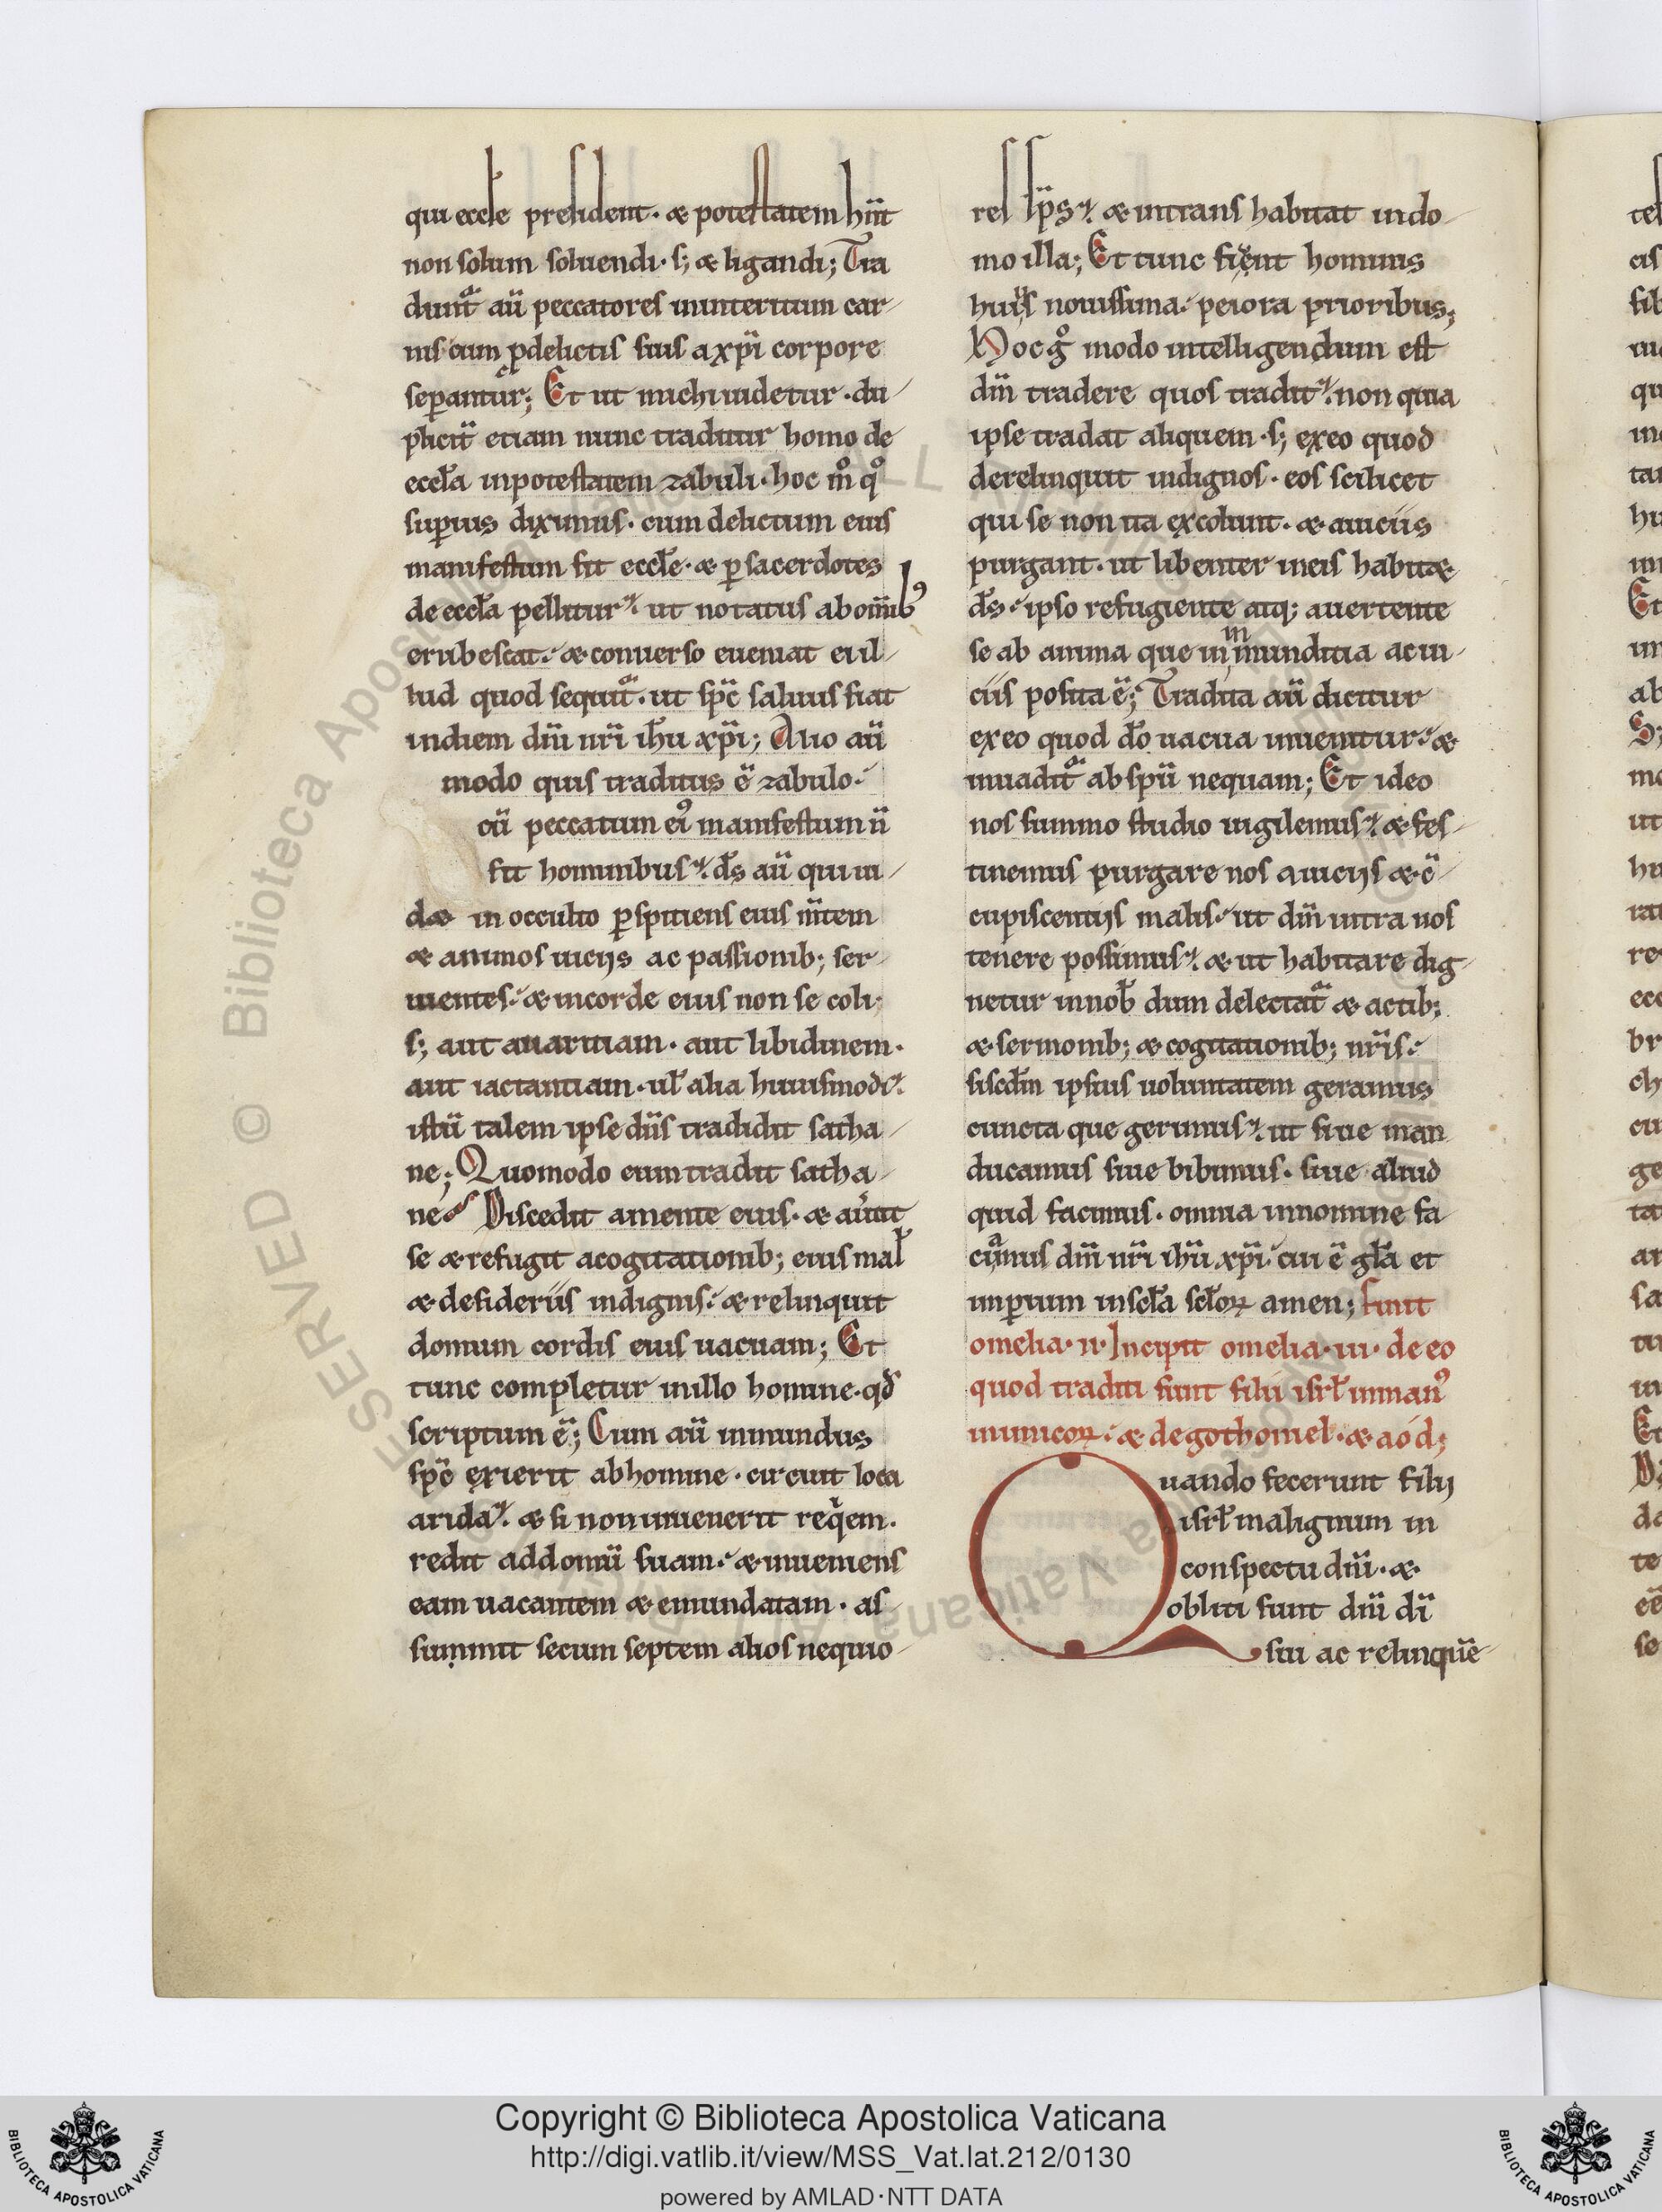 qui eccl̄e president· & potestatem hn̄t
non solum soluendi· s; & ligandi; Tra
dunt᷒ aū peccatores ininteritum car-
nis cum p̱delictis suis a xp̄i corpore
sep̱antur; Et ut michi uidetur· du-
plicit̄ etiam nunc traditur homo de
eccl̄a inpotestatem zabuli· hoc mº qº
sup̱ius diximus· cum delictum eius
manifestum fit eccl̄e· & p̱ sacerdotes
de eccl̄a pellitur· ut notatus ab om̄ibꝰ
erubescat· & conuerso eueniat ei il-
lud quod sequit᷒· ut sp̄c saluus fiat
indiem dn̄i nr̄i ih̄u xp̄i; Alio aū
modo quis traditus ē zabulo·
cū peccatum eiꝰ manifestum n̄
fit hominibus· d̄s aū qui ui-
d& in occulto p̱spitiens eius m̄tem
& animos uicijs ac passionib; ser-
uientes· & incorde eius non se coli
s; aut auaritiam· aut libidinem·
aut iactantiam· ul̄ alia huiusmodi·
istū talem ipse dn̄s tradidit satha-
ne; Quomodo eum tradit satha-
ne Discedit amente eius· & au̓tit
se & refugit acogitationib; eius mal̄
& desideriis indignis· & relinquit
domum cordis eius uacuam; Et
tunc completur inillo homine· qd̄
scriptum ē; Cum aū inmundus
sp̄c exierit abhomine· circuit loca
arida· & si non inuenerit reqͥem·
redit addomū suam· & inueniens
eam uacantem & emundatam· as
summit secum septem alios nequio-
res sp̄s· & intrans habitat indo-
mo illa; Et tunc fient hominis
huius nouissima· peiora prioribus;
Hoc gº modo intelligendum est
dn̄m tradere quos tradit· non quia
ipse tradat aliquem· s; exeo quod
derelinquit indignos· eos scilicet
qui se non ita excolunt· & auiciis
purgant· ut libenter ineis habit&
d̄s· ipso refugiente atq; auertente
se ab anima que in inmunditia ac ui-
ciis posita ē; Tradita aū dicitur
exeo quod dō uacua inuenitur· &
inuadit᷒ ab spū nequam; Et ideo
nos summo studio uigilemus· & fes-
tinemus purgare nos auicijs & c̄-
cupiscentijs malis· ut dn̄m intra nos
tenere possimus· & ut habitare dig-
netur innob̄ dum delectat᷒ & actib;
& sermonib; & cogitationib; nr̄is·
si scd̄m ipsius uoluntatem geramus
cuncta que gerimus· ut siue man
ducamus siue bibimus· siue aliud
quid facimus· omnia innomine fa
ciamus dn̄i nr̄i ih̄u xp̄i· cui ē gl̄a et
imp̱ium inscl̄a scl̄oꝝ amen; finit
omelia· ii· Incipit omelia· iii· de eo
quod traditi sunt filii isrl̄ inmanꝰ
inimicoꝝ· & degothoniel· & aód;
Quando fecerunt filij
isrl̄ malignum in
conspectu dn̄i· &
obliti sunt dn̄i dī
sui ac relinquē-
Copyright © Biblioteca Apostolica Vaticana
http://digi.vatlib.it/view/MSS_Vat.lat.212/0130
powered by AMLAD·NTT DATA
BIBLIOTECA APOSTOLICA VATICANA
BIBLIOTECA APOSTOLICA VATICANA